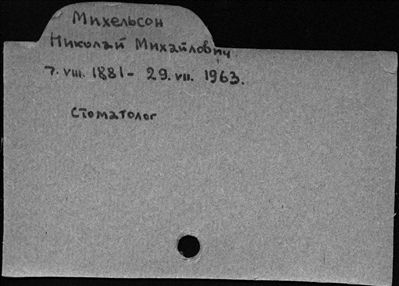 Михельсон
Николай Михайлович
7. VIII. 1881 - 29. VII. 1963.
Стоматолог